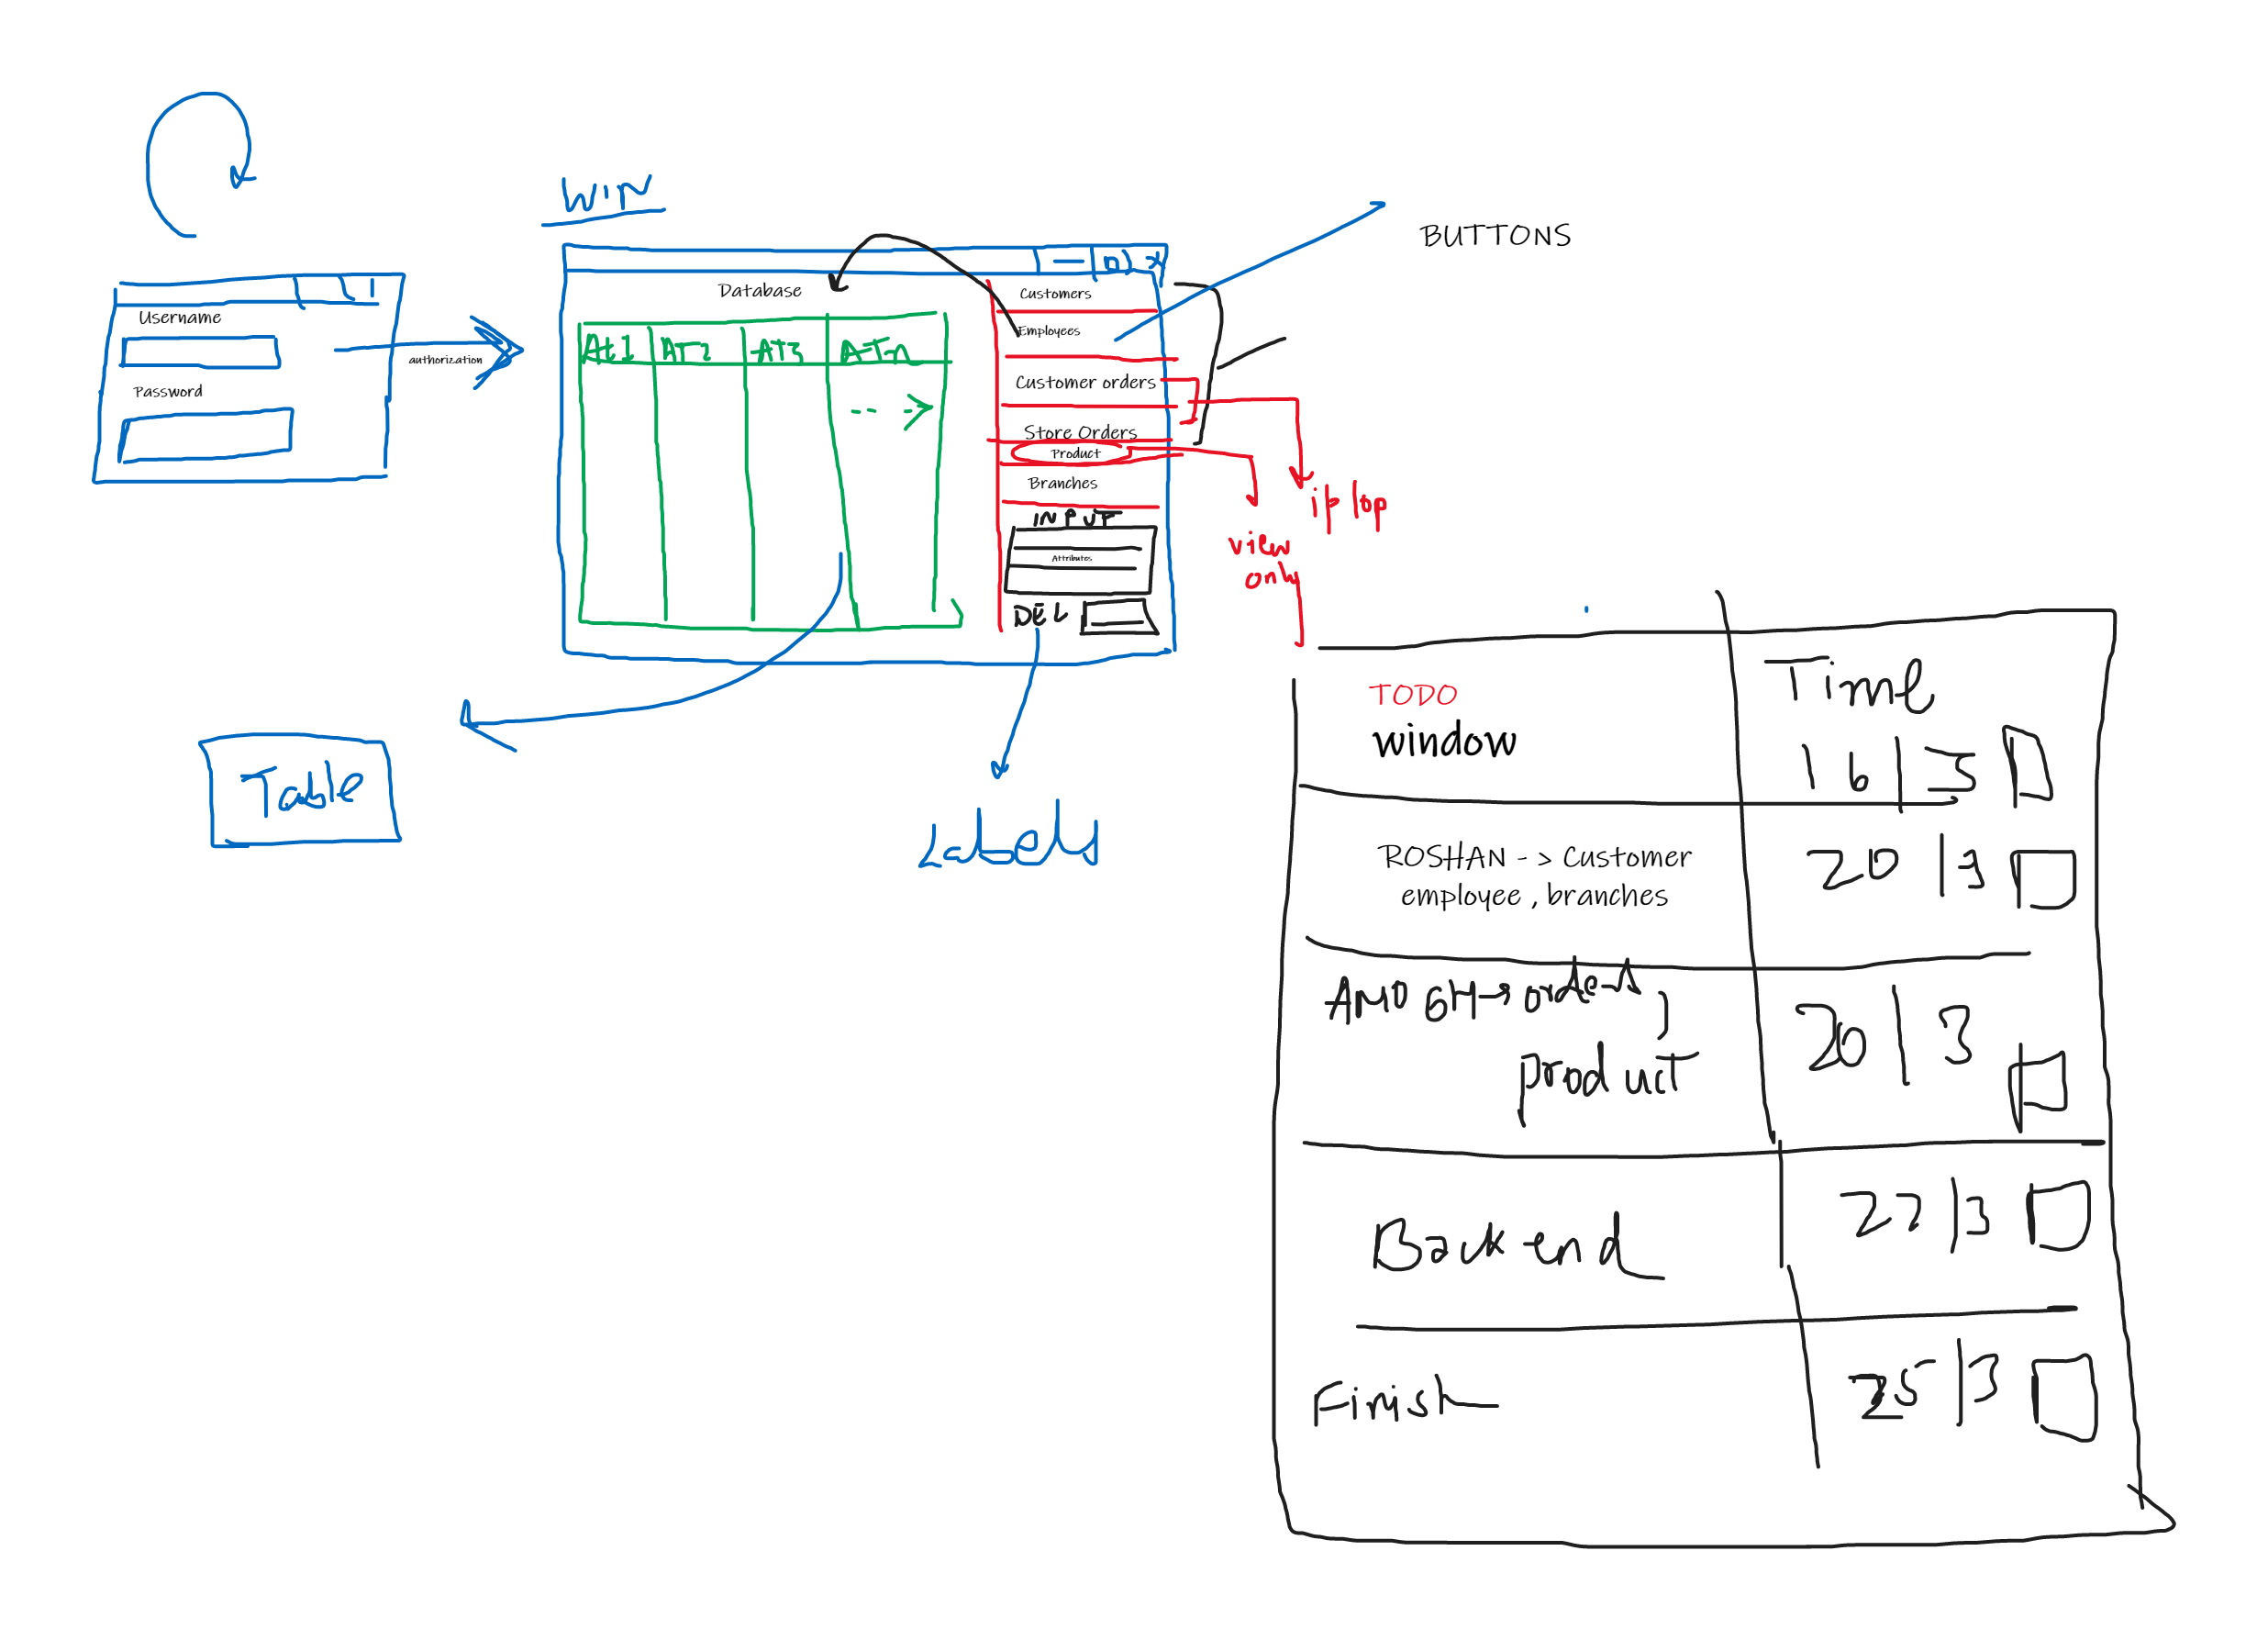 WIN
BUTTONS
Username
authorization
Password
Database
At1 AT2 AT3 ATn
Customers
Employees
Customer orders
Store Orders
Product
Branches
INPUT
Attributes
DEL
i/p
view
only
Table
Labels
TODO
Time
window
16|3
ROSHAN - > Customer
employee , branches
20|3
AMOGH -> orders,
product
20|3
Backend
22|3
Finish
25|3